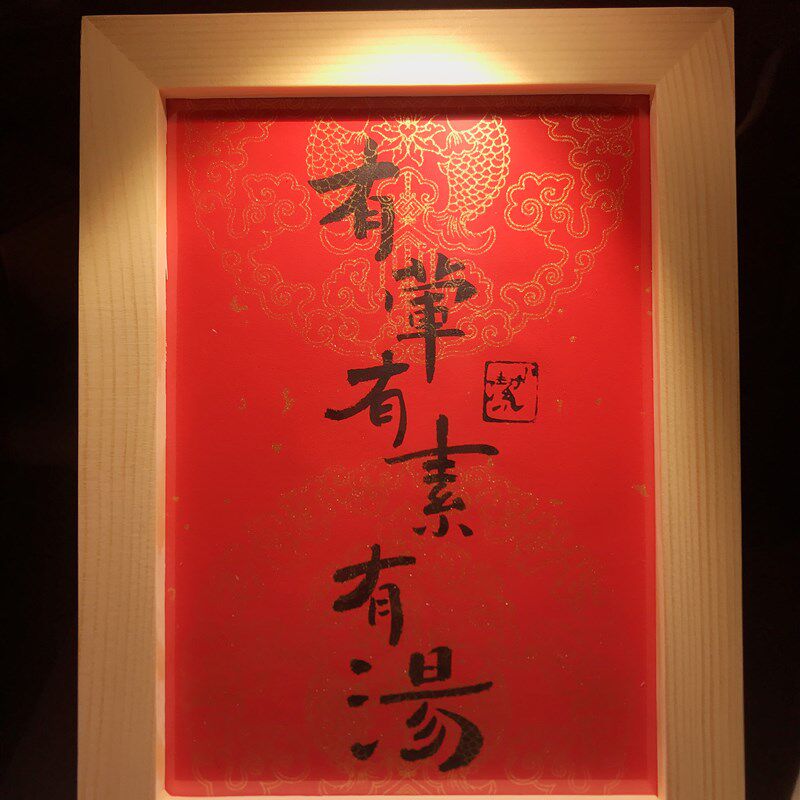 有葷有素有湯